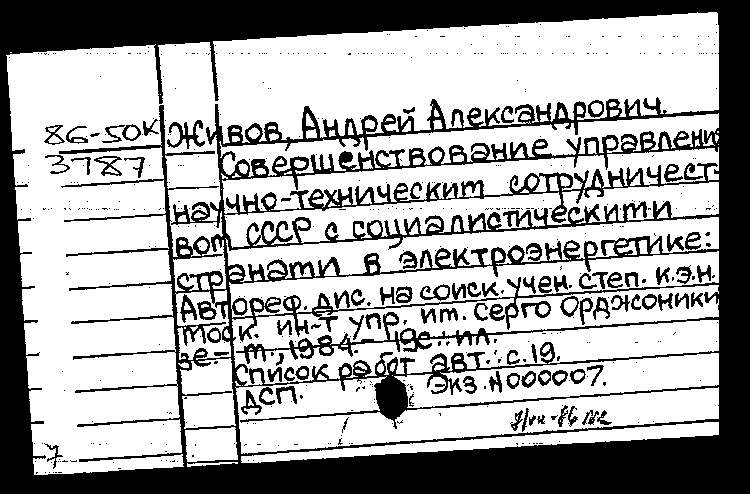 86-50К Живов, Андрей Александрович.
3787 Совершенствование управлени
научно-техническим сотрудничест-
вом СССР с социалистическими
странами в электроэнергетике:
Автореф. дис. на соиск. учен. степ. к.э.н.
Моск. ин-т упр. им. Серго Орджоники
зе.- М., 1984.- 19с.: ил.
Список работ авт.: с.19.
ДСП. Экз.N000007.
7